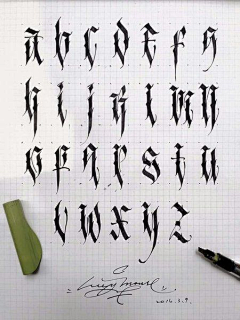 a b c d e f g
h i j k l m n
o p q r s t u
v w x y z
2016.3.9.